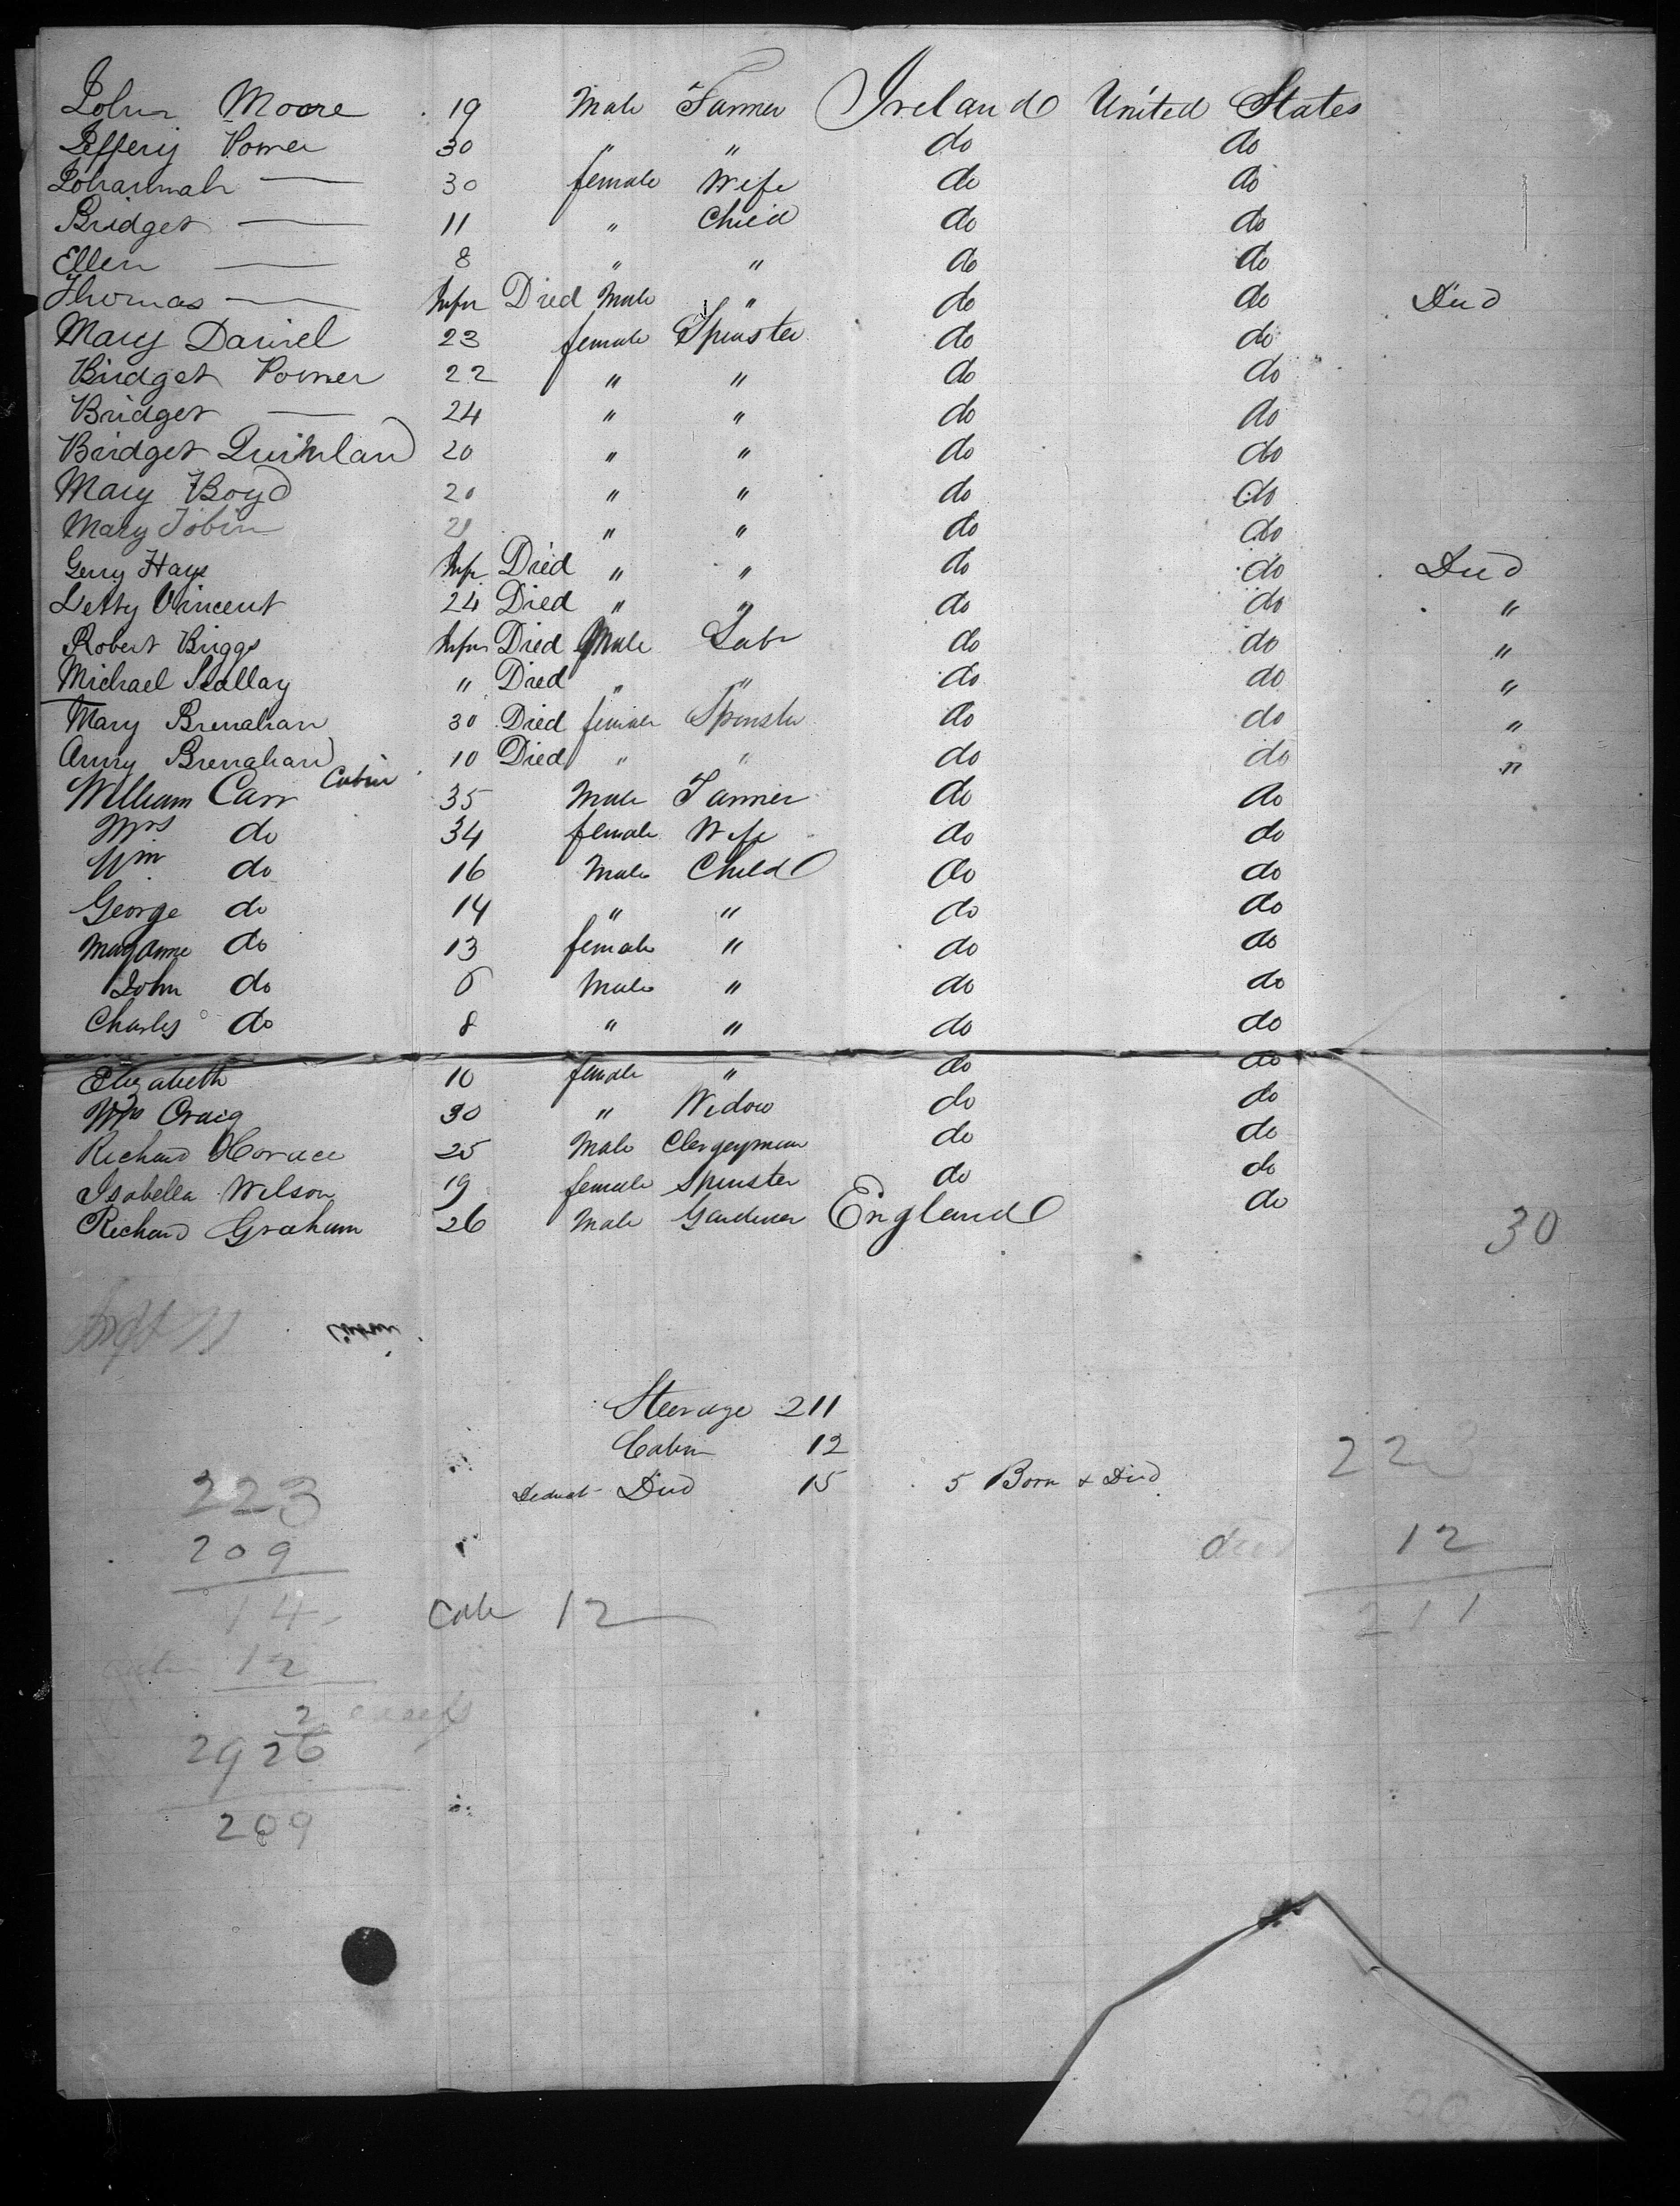 John Moore 19 Male Farmer Ireland United States
Jeffery Power 30 " " do do
Johannah — 30 female Wife do do
Bridget — 11 " Child do do
Ellen — 8 " " do do
Thomas — Infn Died Male " do do Died
Mary Daniel 23 female Spinster do do
Bridget Power 22 " " do do
Bridget — 24 " " do do
Bridget Quinlan 20 " " do do
Mary Boyd 20 " " do do
Mary Tobin " " do do
Gerry Hays Inf Died " " do do Died
Letty Vincent 24 Died " " do do "
Robert Briggs Infn Died Male Labr do do "
Michael " Died " " do do "
Mary Brenahan 30 Died female Spinster do do "
Anny Brenahan 10 Died " " do do "
William Carr Cabin 35 Male Farmer do do
Mrs do 34 female Wife do do
Wm do 16 Male Child do do
George do 14 " " do do
Mary Anne do 13 female " do do
John do 6 Male " do do
Charles do 8 " " do do
Elizabeth 10 female " do do
Mrs Craig 30 " Widow do do
Richard Horace 25 Male Clergeyman do do
Isabella Wilson 19 female Spinster do do
Richard Graham 26 Male Gardener England do
30
Steerage 211
Cabin 12
Deduct Died 15 5 Born & Died
223
223
209
died 12
14
Cabn 12
211
12
2
2926
209